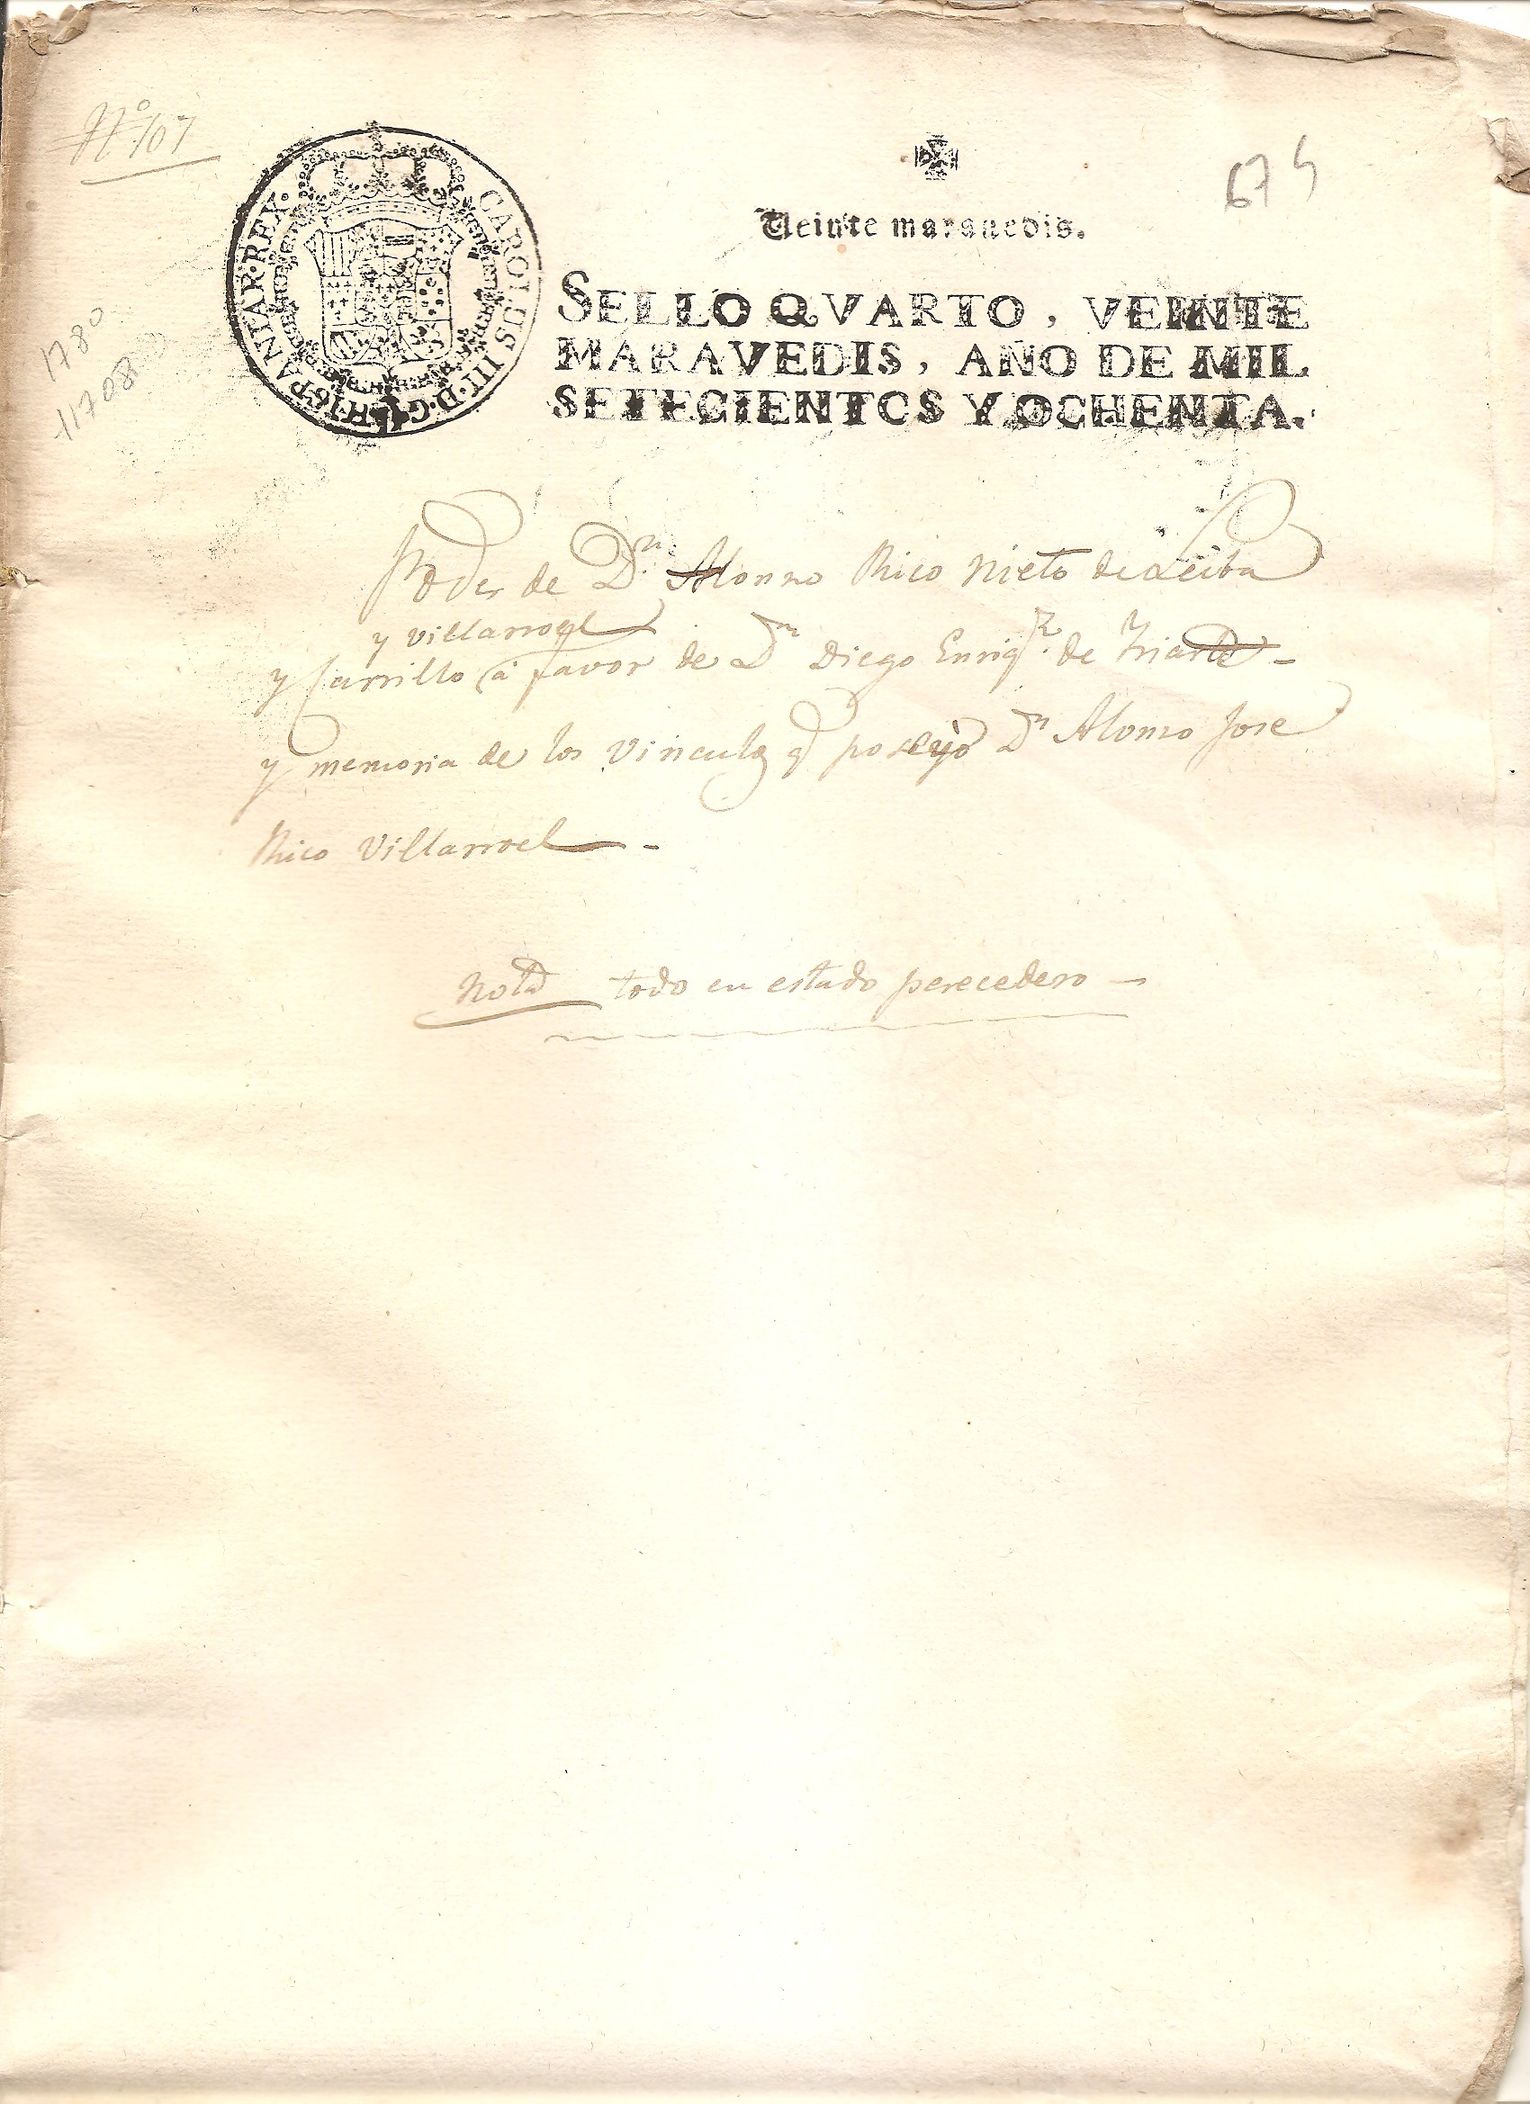 Nº 107
1780
11708
CAROLUS III·D·G·HISPANIAR·REX·
674
Veinte marauedis.
SELLO QVARTO, VEINTE
MARAVEDIS, AÑO DE MIL
SETECIENTOS Y OCHENTA.
Poder de Dn. Alonso Rico Nieto de Leiba
y Villarroel
y Carrillo a favor de Dn Diego Enriqz. de Iriarte -
y memoria de los Vinculos q poseyò Dn Alonso Jose
Rico Villarroel -
Nota todo en estado perecedero -